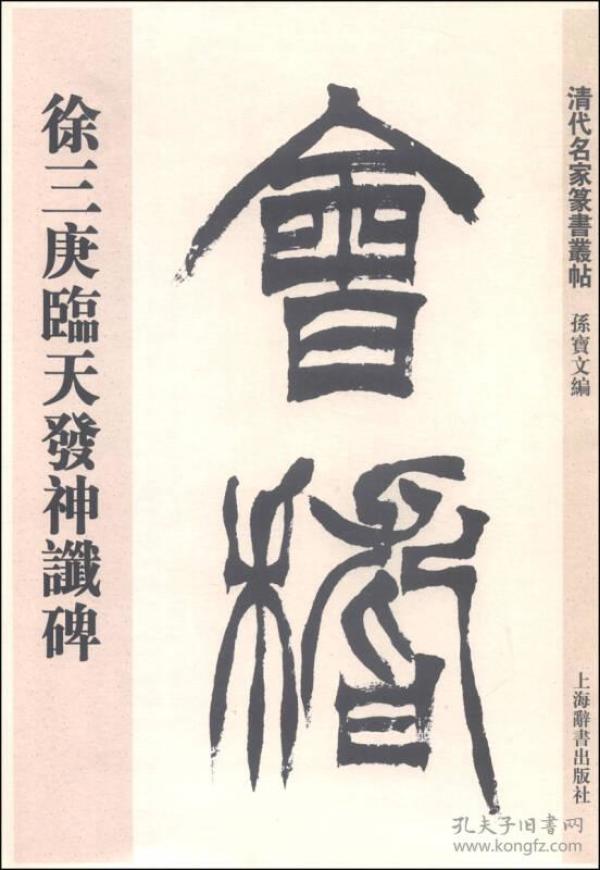 清代名家篆書叢帖
孫寶文編
上海辭書出版社
會稽
徐三庚臨天發神讖碑
孔夫子旧書网
www.kongfz.com